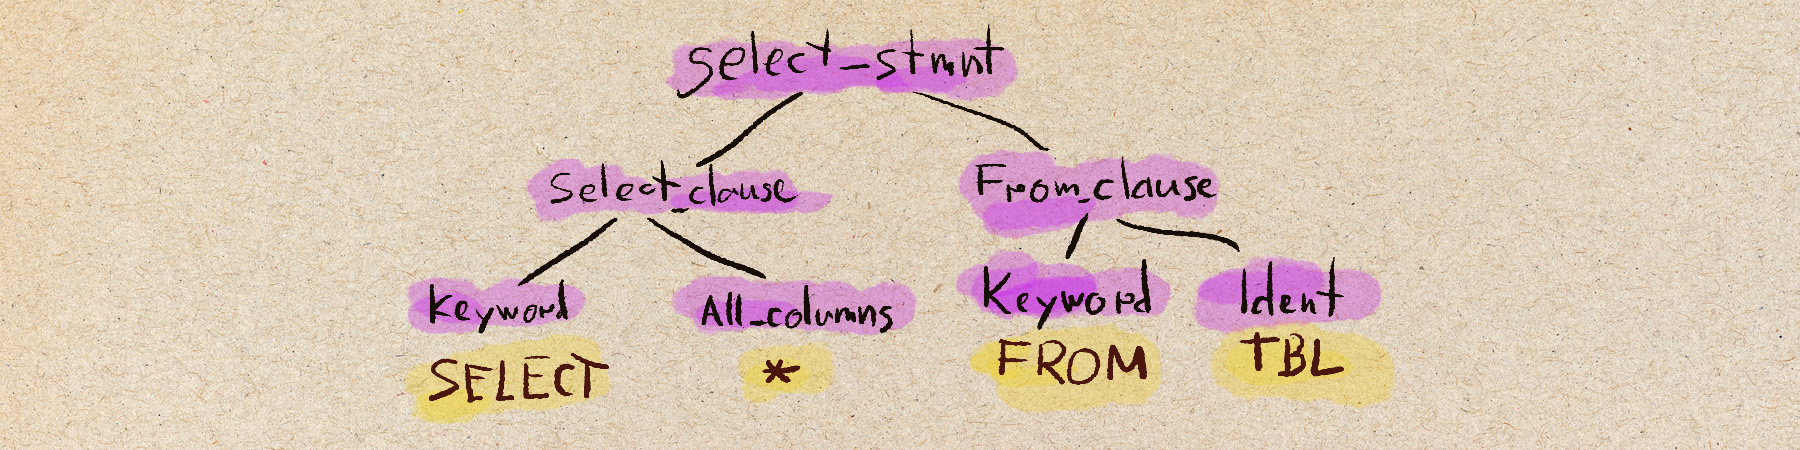 select_stmnt
Select_clause From_clause
Keyword All_columns Keyword Ident
SELECT * FROM TBL